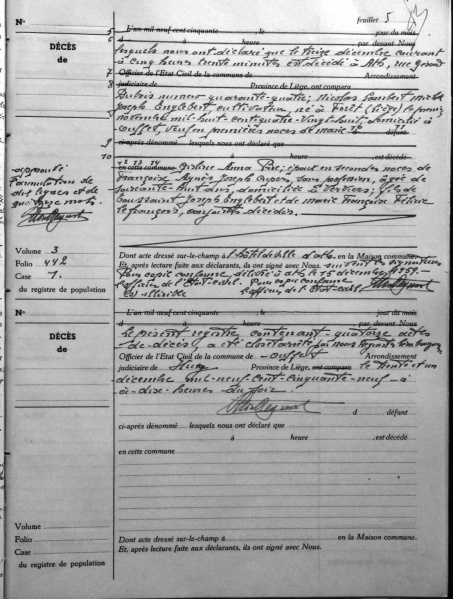 feuillet 5
N°
DÉCÈS
de
5 L'an mil neuf cent cinquante , le jour du mois
6 d à heure par devant Nous
lesquels nous ont déclaré que le treize décembre courant
à cinq heures trente minutes est décédé à Ath, rue Gérard
7 Officier de l'Etat Civil de la commune de Arrondissement
8 judiciaire de Province de Liège, ont comparu
Dubois numéro quarante-quatre, Nicolas Lambert
Joseph Englebert cultivateur, né à (Liège) le
novembre mil-huit-cent-quatre-vingt-huit, domicilié à
Ouffet, veuf en premières noces de Marie
d défunt
9 ci-après dénommé lesquels nous ont déclaré que
10 à heure est décédé
en cette commune Anna époux en secondes noces de
Françoise Agnès Joseph sans profession, âgée de
soixante-huit ans, domiciliée à Verviers; fils de
Toussaint Joseph Englebert et de Marie Françoise Félicie
Lefrançois, conjoints décédés.
approuvé
l'annulation de
dix lignes et de
mots.
Volume 3
Folio 442
Case 1.
du registre de population
Dont acte dressé sur-le-champ à l'hôtel de ville d'Ath en la Maison commune.
Et, après lecture faite aux déclarants, ils ont signé avec Nous. suivent les signatures
Pour copie conforme, délivrée à Ath le 15 décembre 1959.-
l'officier de l'Etat-civil. Pour copie conforme
(s) illisible l'officier de l'Etat-civil
N°
DÉCÈS
de
L'an mil neuf cent cinquante , le jour du mois
d à heure par devant Nous
Le présent registre contenant quatorze actes
de décès, a été clôturé par nous
Officier de l'Etat Civil de la commune de Ouffet Arrondissement
judiciaire de Huy Province de Liège, ont comparu le trente et un
décembre mil-neuf-cent-cinquante-neuf - à
à dix-heures du soir.
d défunt
ci-après dénommé lesquels nous ont déclaré que
à heure , est décédé
en cette commune
Volume
Folio
Case
du registre de population
Dont acte dressé sur-le-champ à en la Maison commune.
Et, après lecture faite aux déclarants, ils ont signé avec Nous.